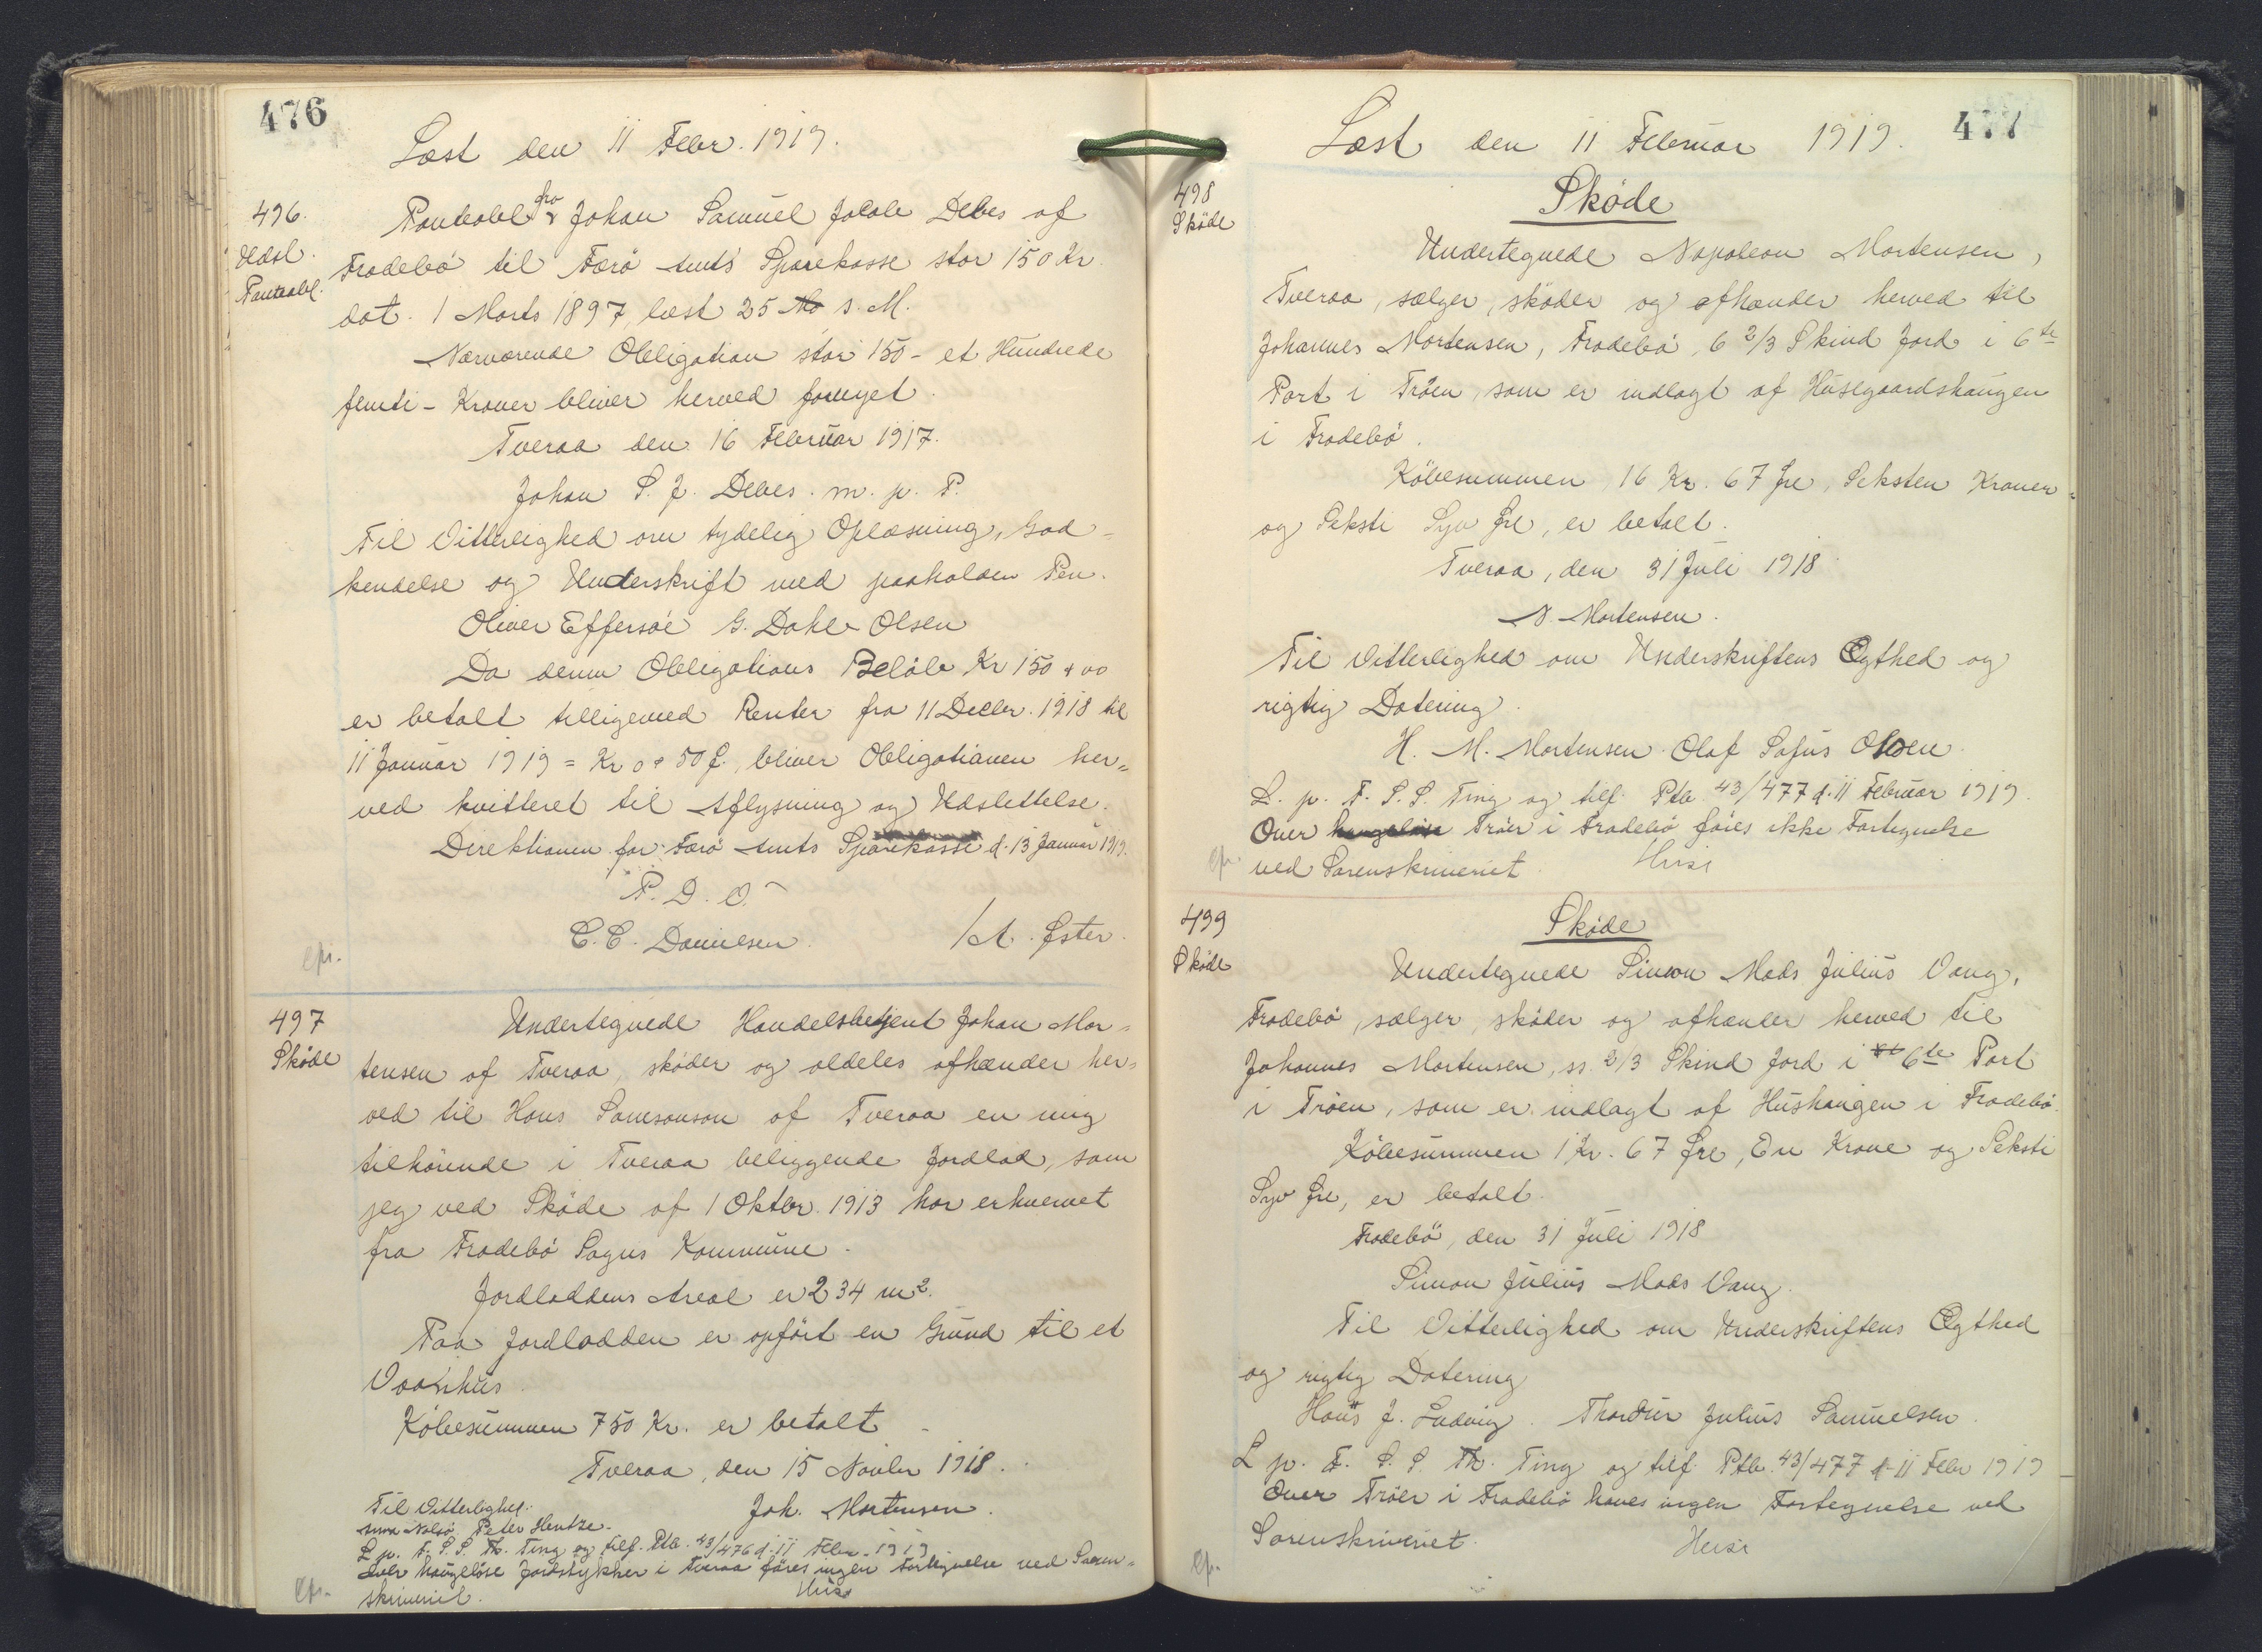 476
Læst den 11 Febr. 1919.
496.
Udsl.
Panteobl.
Panteobl fra Johan Samuel Jacob Debes af
Frodebö til Færö Amts Sparekasse stor 150 Kr.
dat. 1 Marts 1897, læst 25 s. M.
Nærværende Obligation stor 150 - et Hundrede
femti - Kroner bliver herved fornyet.
Tveraa den 16 Februar 1917.
Johan S. J. Debes. m. p. P.
Til Vitterlighed om tydelig Oplæsning, God-
kendelse og Underskrift med paaholden Pen.
Oliver Effersöe G. Dahl-Olsen
Da denne Obligations Belöb Kr 150 + 00
er betalt tilligemed Renter fra 11 Decbr. 1918 til
11 Januar 1919 = Kr 0 + 50 Ø., bliver Obligationen her-
ved kvitteret til Aflysning og Udslettelse.
Direktionen for Færö Amts Sparekasse d. 13 Januar 1919.
P. D. V.
C. C. Danielsen. /A. Øster.
cpr.
497
Sköde
Undertegnede Handelsbetjent Johan Mor-
tensen af Tveraa, sköder og aldeles afhænder her-
ved til Hans Samsonson af Tveraa en mig
tilhörende i Tveraa beliggende Jordlod, som
jeg ved Sköde af 1 Oktbr. 1913 har erhvervet
fra Frodebö Sogns Kommune.
Jordloddens Areal er 234 m².
Paa Jordlodden er opfört en Grund til et
Vaanhus.
Köbesummen 750 Kr. er betalt.
Tveraa, den 15 Novbr 1918.
Til Vitterlighed. Joh. Mortensen.
Nolsö Peter Hentze.
L. p. F. S. S. Th. Ting og tilf. Ptb. 43/476 d. 11 Febr. 1919
Over haugelöse Jordstykker i Tveraa föres ingen Fortegnelse ved Soren-
skriveriet.
cpr.
477
Læst den 11 Februar 1919.
498
Sköde
Sköde
Undertegnede Napoleon Mortensen,
Tveraa, sælger, sköder og afhænder herved til
Johannes Mortensen, Frodebö, 6 2/3 Skind Jord i 6te
Part i Tröen, som er indlagt af Husegaardshaugen
i Frodebö.
Köbesummen 16 Kr. 67 Øre, Seksten Kroner
og Seksti Syv Øre, er betalt.
Tveraa, den 31 Juli 1918
N. Mortensen.
Til Vitterlighed om Underskriftens Ægthed og
rigtig Datering.
H. M. Mortensen. Olaf Sofus Olsen.
L. p. F. S. S. Ting og tilf. Ptb. 43/477 d. 11 Februar 1919.
Over haugelöse Tröer i Frodebö föres ikke Fortegnelse
ved Sorenskriveriet.
cpr.
499
Sköde
Sköde
Undertegnede Simon Mads Julius Vang,
Frodebö, sælger, sköder og afhænder herved til
Johannes Mortensen, ss. 2/3 Skind Jord i 6te Part
i Tröen, som er indlagt af Hushaugen i Frodebö.
Köbesummen 1 Kr. 67 Øre, En Krone og Seksti
Syv Øre, er betalt.
Frodebö, den 31 Juli 1918
Simon Julius Mads Vang.
Til Vitterlighed om Underskriftens Ægthed
og rigtig Datering
Hans J. Ludvig. Thordur Julius Samuelsen.
L p. F. S. S. Th. Ting og tilf. Ptb. 43/477 d. 11 Febr 1919
Over Tröer i Frodebö haves ingen Fortegnelse ved
Sorenskriveriet.
cpr.